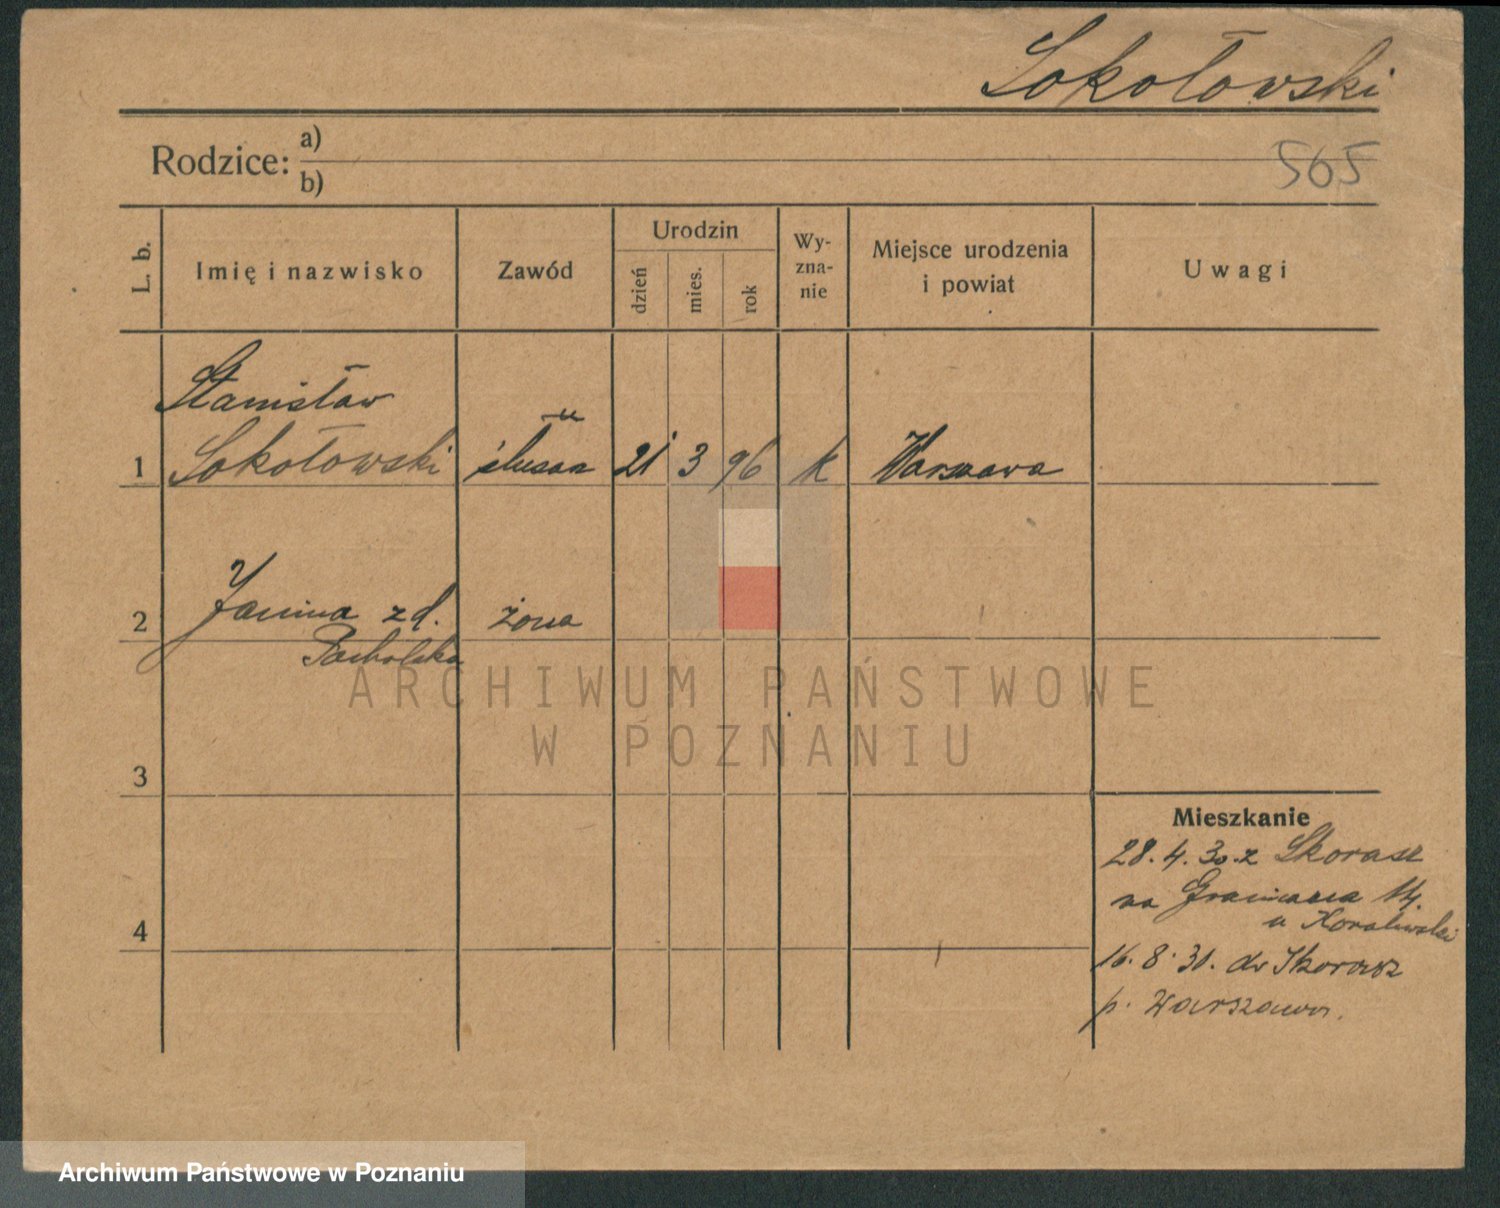 Sokołowski
Rodzice: a)
b)
565
L. b.
Imię i nazwisko
Zawód
Urodzin
dzień
mies.
rok
Wy-
zna-
nie
Miejsce urodzenia
i powiat
Uwagi
Stanisław
1 Sokołowski ślusarz 21 3 96 k Warszawa
2 Janina zd. żona
Pacholska
ARCHIWUM PAŃSTWOWE
W POZNANIU
3
Mieszkanie
28. 4. 30. z Skorasz
na Graniczna 14.
4
u
16. 8. 30. do Skorosz
p. Warszawa.
Archiwum Państwowe w Poznaniu